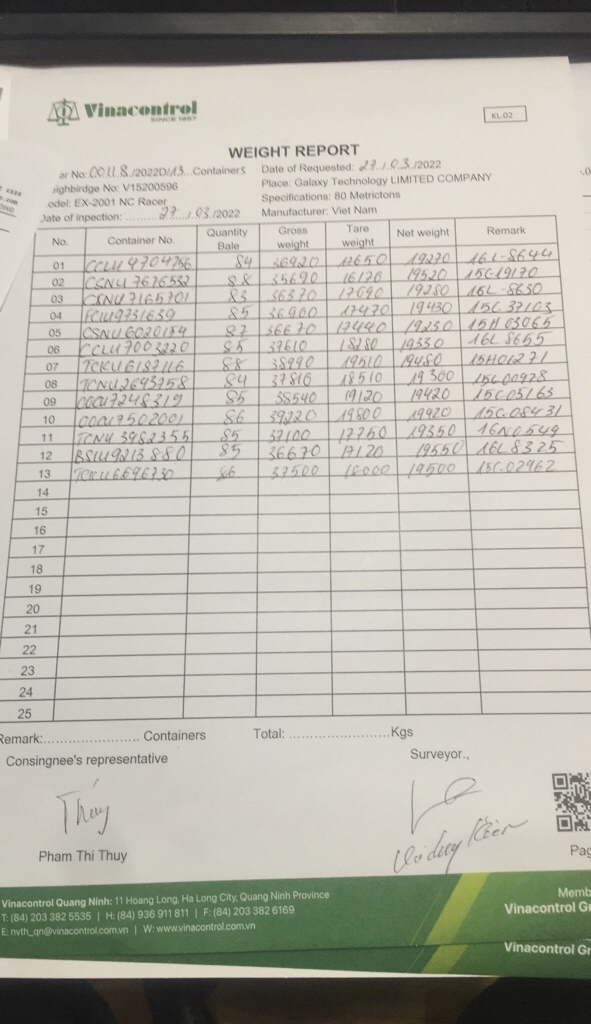 Vinacontrol
SINCE 1957
KL.02
WEIGHT REPORT
No: 00118 Containers Date of Requested: 27/03/2022
ighbirdge No: V15200596 Place: Galaxy Technology LIMITED COMPANY
odel: EX-2001 NC Racer Specifications: 80 Metrictons
Date of inpection: ......... 27/03/2022 Manufacturer: Viet Nam
No. Container No. Quantity Bale Gross weight Tare weight Net weight Remark
01 CCLU4704756 84 36920 17650 19270 16L-8644
02 CSNU7676532 88 35690 16170 19520 15C19170
03 CSNU7165701 83 36370 17090 19280 16L-8630
04 FCIU9731639 85 36900 17470 19430 15C.37103
05 CSNU6020184 87 36670 17440 19230 15H03065
06 CCLU7003220 85 37610 18280 19330 16L8655
07 TCKU6187116 88 38990 19510 19480 15H01271
08 TCNU2643758 84 37810 18510 19300 15C00978
09 85 38540 19120 19420 15C05163
10 86 39220 19800 19420 15C.08431
11 TCNU3982355 85 37100 17750 19350 16N0549
12 BSIU9213880 85 36670 17120 19550 16L8325
13 TCKU6696730 86 37500 18000 19500 15C.02962
14
15
16
17
18
19
20
21
22
23
24
25
Remark:....................... Containers Total: .........................Kgs
Consingnee's representative Surveyor.,
Thúy
Pham Thi Thuy
Pag
Vinacontrol Quang Ninh: 11 Hoang Long, Ha Long City, Quang Ninh Province
T: (84) 203 382 5535 | H: (84) 936 911 811 | F: (84) 203 382 6169
E: nvth_qn@vinacontrol.com.vn | W: www.vinacontrol.com.vn
Memb
Vinacontrol Gr
Vinacontrol Gr